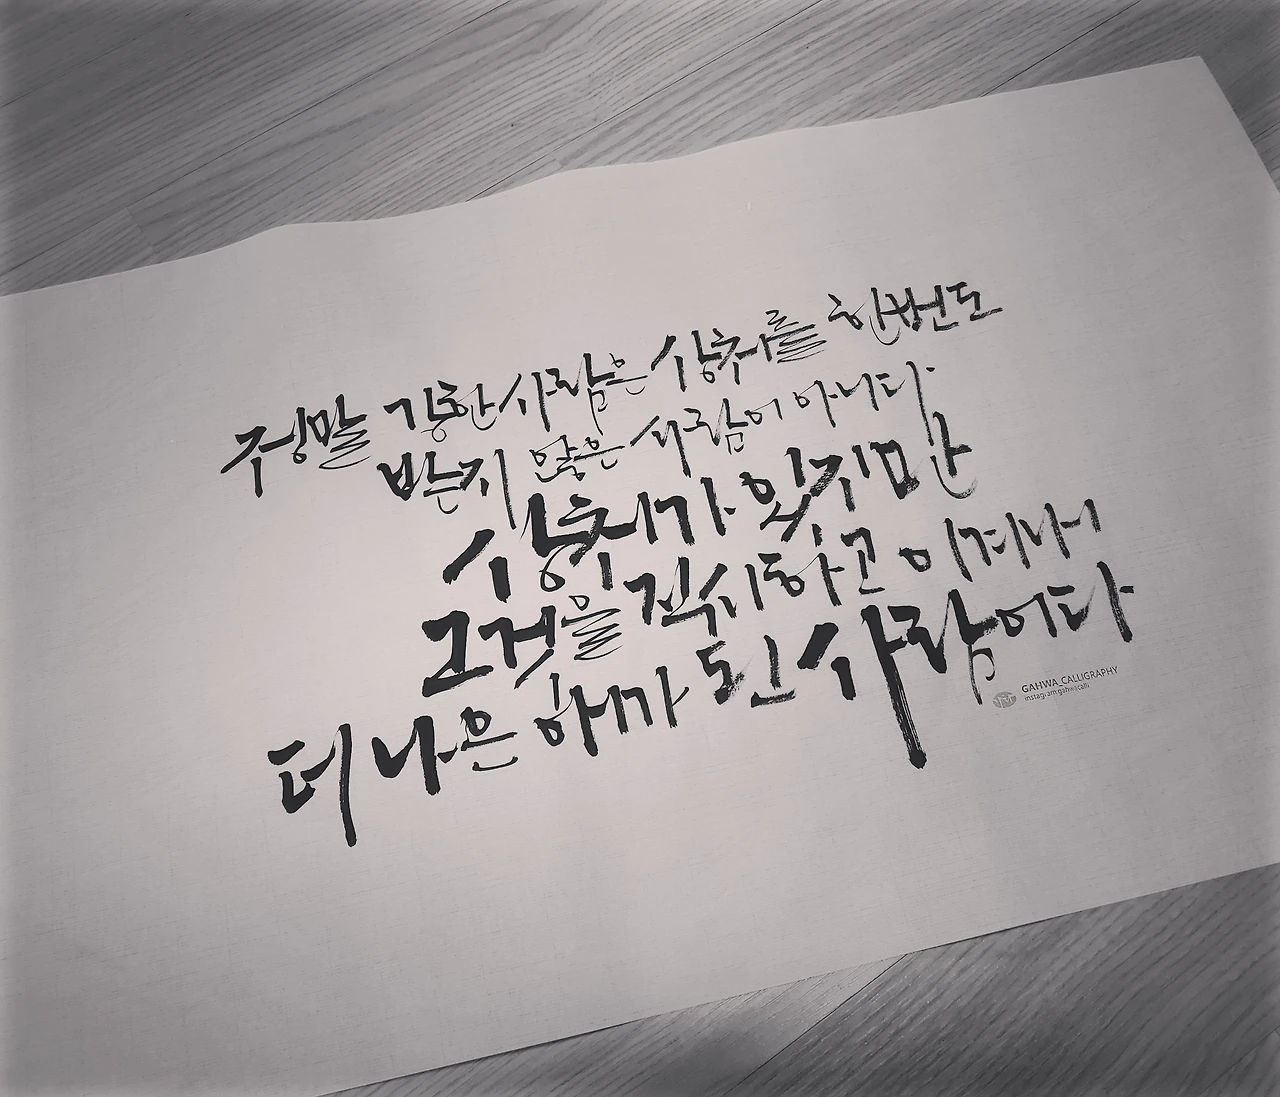 정말 강한 사람은 상처를 한번도
받은지 않은 사람이 아니다
상처가 있지만
그것을 직시하고 이겨내서
더 나은 하가 된 사람이다
GAHWA_CALLIGRAPHY
instagram:gahwacalli